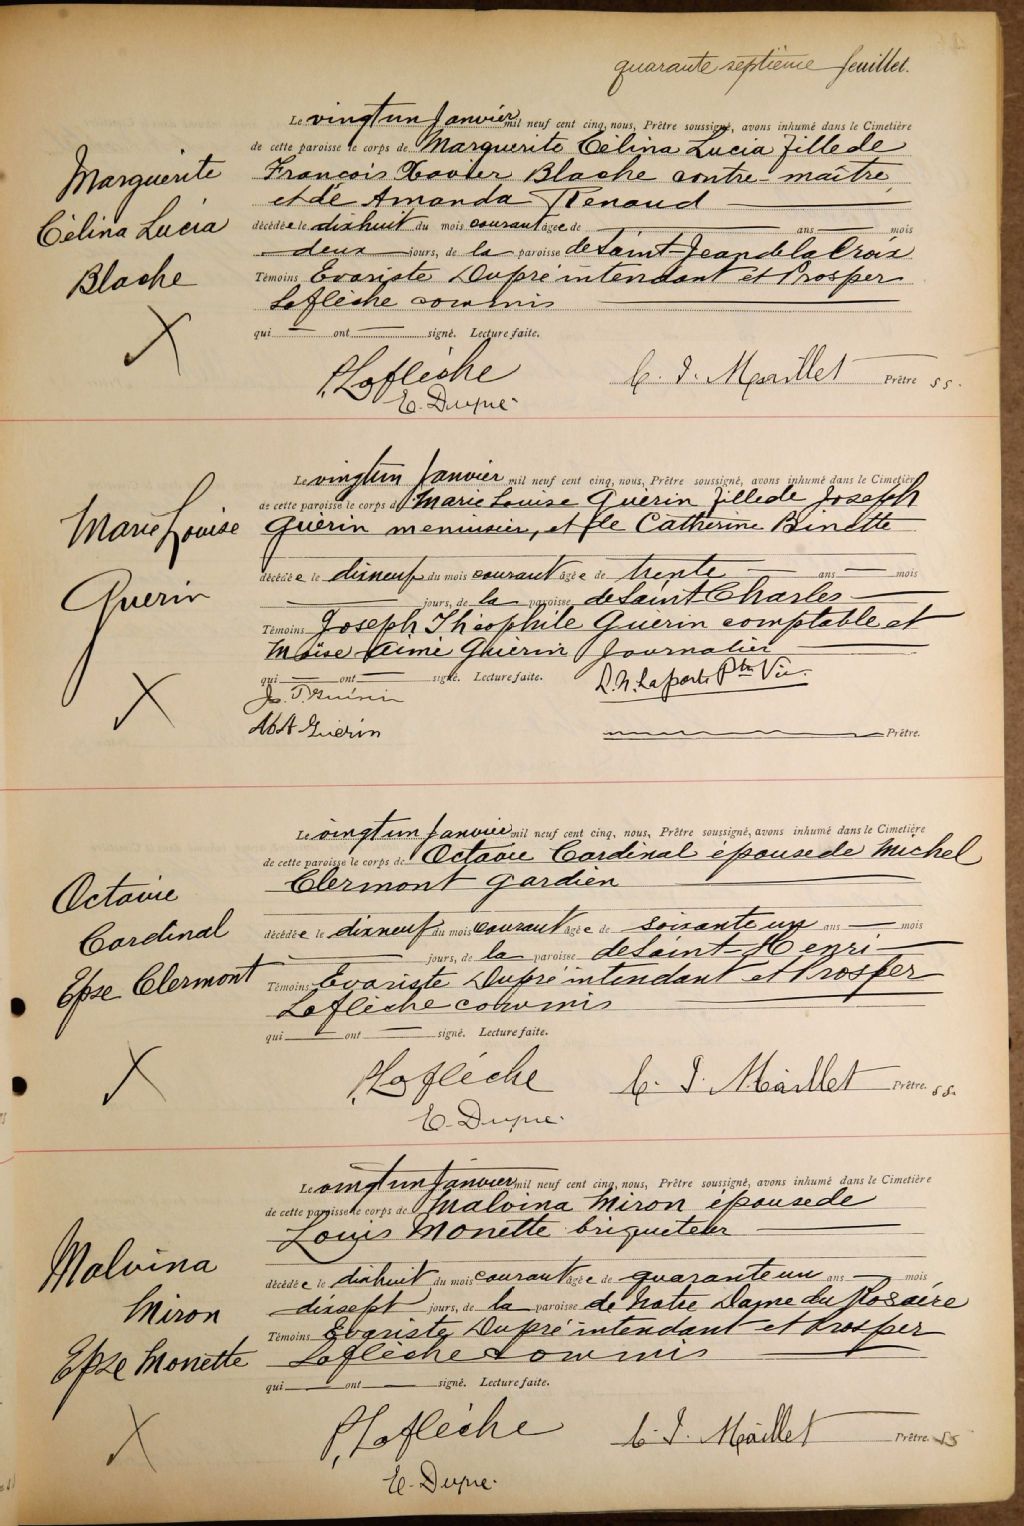 quarante septième feuillet.
Le vingt un Janvier mil neuf cent cinq, nous, Prêtre soussigné, avons inhumé dans le Cimetière
de cette paroisse le corps de Marguerite Célina Lucia fille de
Marguerite
François Xavier Blache contre-maître
et de Amanda Renaud
Célina Lucia
décédée le dixhuit du mois courant âgée de ans mois
deux jours, de la paroisse de Saint-Jean de la Croix
Blache
Témoins Evariste Dupré intendant et Prosper
Laflèche commis
X
qui ont signé. Lecture faite.
P. Laflèche C. J. Maillet Prêtre SS.
E. Dupré.
Le vingt un Janvier mil neuf cent cinq, nous, Prêtre soussigné, avons inhumé dans le Cimetière
de cette paroisse le corps de Marie Louise Guérin fille de Joseph
Marie Louise
Guérin menuisier, et de Catherine Binette
Guerin
décédée le dixneuf du mois courant âgée de trente ans mois
jours, de la paroisse de Saint Charles
Témoins Joseph Théophile Guérin comptable et
Moïse Aimé Guérin Journalier
X
qui ont signé. Lecture faite. Laporte Ptre Vic.
J. T. Guérin
Guérin Prêtre.
Le vingt un Janvier mil neuf cent cinq, nous, Prêtre soussigné, avons inhumé dans le Cimetière
de cette paroisse le corps de Octavie Cardinal épouse de Michel
Octavie
Clermont gardien
Cardinal
décédée le dixneuf du mois courant âgée de soixante un ans mois
jours, de la paroisse de Saint-Henri
Epse Clermont
Témoins Evariste Dupré intendant et Prosper
Laflèche commis
qui ont signé. Lecture faite.
X
P. Laflèche C. J. Maillet Prêtre. SS.
E. Dupré.
Le vingt un Janvier mil neuf cent cinq, nous, Prêtre soussigné, avons inhumé dans le Cimetière
de cette paroisse le corps de Malvina Miron épouse de
Louis Monette briqueteur
Malvina
décédée le dixhuit du mois courant âgée de quarante un ans mois
Miron
dixsept jours, de la paroisse de Notre Dame du Rosaire
Témoins Evariste Dupré intendant et Prosper
Epse Monette
Laflèche commis
qui ont signé. Lecture faite.
X
P. Laflèche C. J. Maillet Prêtre. SS
E. Dupré.